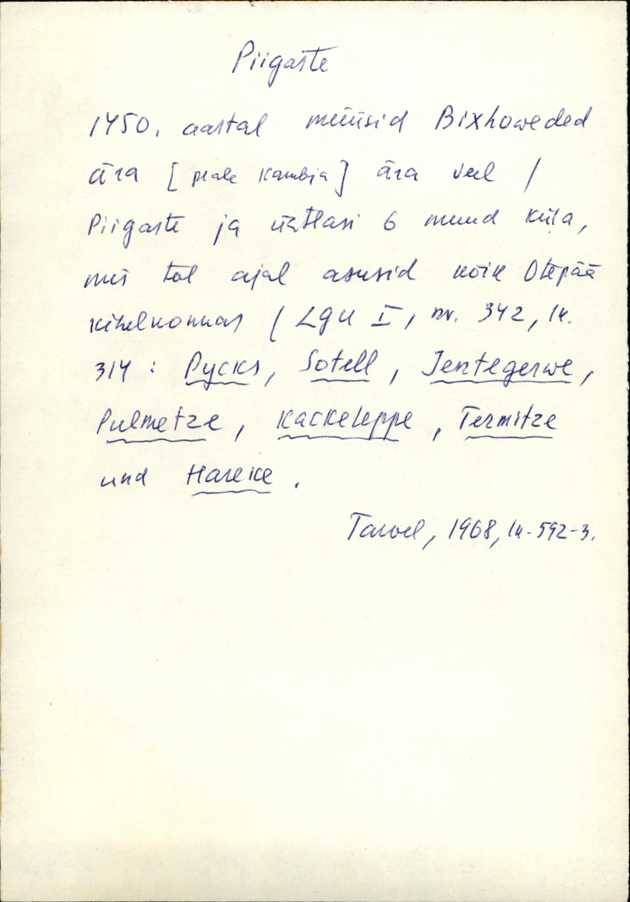 Piigaste
1450. aastal müüsid Bixhoweded
ära [peale Kambja] ära veel /
Piigaste ja ühtlasi 6 muud küla,
mis tol ajal asusid kõik Otepää
kihelkonnas (LGU I, nr. 342, lk.
314: Pycks, Sotell, Jentegerwe,
Pulmetze, Kackeleppe, Termitze
und Hareke.
Tarvel, 1968, lk. 592-3.